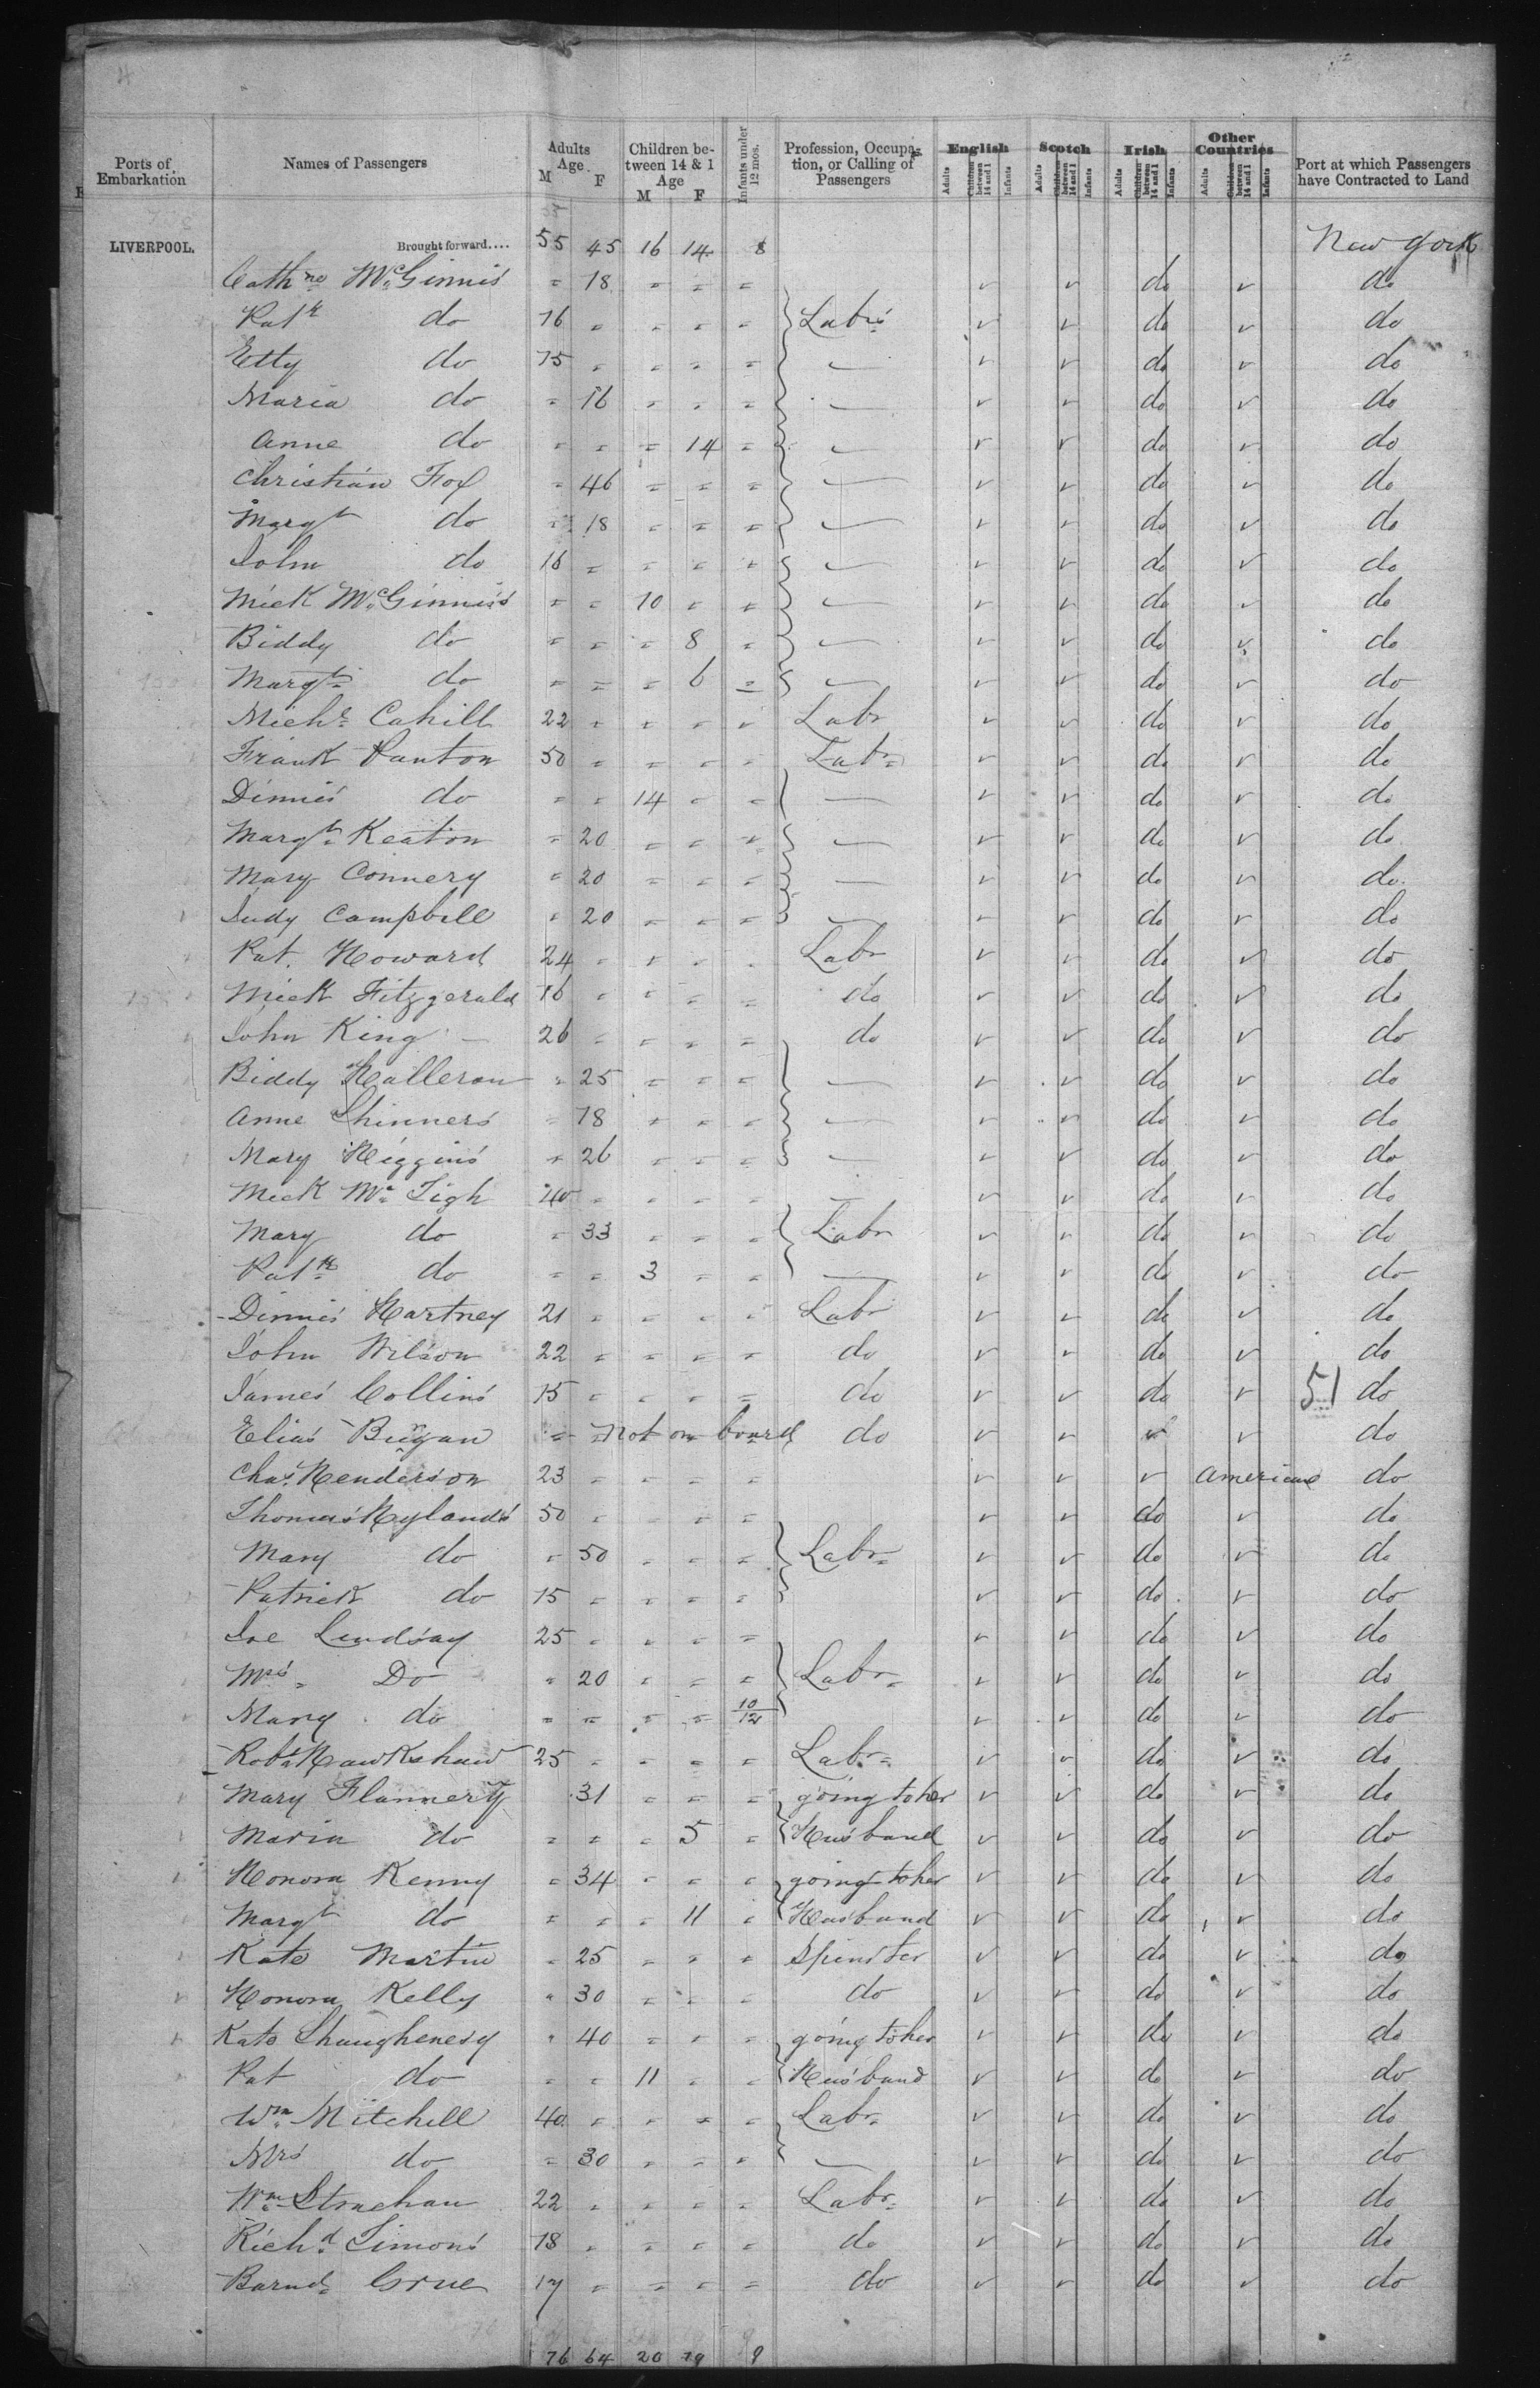 4
Ports of Embarkation | Names of Passengers | Adults Age M F | Children between 14 & 1 Age M F | Infants under 12 mos. | Profession, Occupation, or Calling of Passengers | English Adults Children between 14 and 1 Infants | Scotch Adults Children between 14 and 1 Infants | Irish Adults Children between 14 and 1 Infants | Other Countries Adults Children between 14 and 1 Infants | Port at which Passengers have Contracted to Land
LIVERPOOL. Brought forward.... 55 45 16 14 8 New York
Cathne McGinnis " 18 " " " ✓ ✓ do ✓ do
Patk do 16 " " " " Labrs ✓ ✓ do ✓ do
Etty do 15 " " " " — ✓ ✓ do ✓ do
Maria do " 16 " " " — ✓ ✓ do ✓ do
Anne do " " " 14 " — ✓ ✓ do ✓ do
Christian Fox " 46 " " " — ✓ ✓ do ✓ do
Margt do " 18 " " " — ✓ ✓ do ✓ do
John do 16 " " " " — ✓ ✓ do ✓ do
Mick McGinniss " " 10 " " — ✓ ✓ do ✓ do
Biddy do " " " 8 " — ✓ ✓ do ✓ do
Margt do " " " 6 " — ✓ ✓ do ✓ do
Michl Cahill 22 " " " " Labr ✓ ✓ do ✓ do
Frank Panton 50 " " " " Labr ✓ ✓ do ✓ do
Dinnis do " " 14 " " — ✓ ✓ do ✓ do
Margt Keaton " 20 " " " — ✓ ✓ do ✓ do
Mary Connery " 20 " " " — ✓ ✓ do ✓ do.
Judy Campbell " 20 " " " — ✓ ✓ do ✓ do
Pat. Howard 24 " " " " Labr ✓ ✓ do ✓ do
Mick Fitzgerald 16 " " " " do ✓ ✓ do ✓ do
John King — 26 " " " " do ✓ ✓ do ✓ do
Biddy Halleron " 25 " " " — ✓ ✓ do ✓ do
Anne Shinners " 18 " " " — ✓ ✓ do ✓ do
Mary Higgins " 26 " " " — ✓ ✓ do ✓ do
Mick Mc Tigh 40 " " " " — ✓ ✓ do ✓ do
Mary do " 33 " " " Labr ✓ ✓ do ✓ do
Patk do " " 3 " " — ✓ ✓ do ✓ do
Dinnis Hartney 21 " " " " Labr ✓ ✓ do ✓ do
John Wilson 22 " " " " do ✓ ✓ do ✓ do
James Collins 15 " " " " do ✓ ✓ do ✓ 51 do
Elias " " Not on board do ✓ ✓ ✓ ✓ do
Chas. Henderson 23 " " " " ✓ ✓ ✓ American do
Thomas Hylands 50 " " " " ✓ ✓ do ✓ do
Mary do " 50 " " " Labr ✓ ✓ do ✓ do
Patrick do 15 " " " " ✓ ✓ do ✓ do
Joe Lindsay 25 " " " " ✓ ✓ do ✓ do
Mrs Do " 20 " " " Labr ✓ ✓ do ✓ do
Mary do " " " " 10/12 ✓ ✓ do ✓ do
Robt Hawkshaw 25 " " " " Labr ✓ ✓ do ✓ do
Mary Flannerty 31 " " " going to her ✓ ✓ do ✓ do
Maria do " " " 5 " Husband ✓ ✓ do ✓ do
Honora Kenny " 34 " " " going to her ✓ ✓ do ✓ do
Margt do " " " 11 " Husband ✓ ✓ do ✓ do
Kate Martin " 25 " " " Spinster ✓ ✓ do ✓ do
Honora Kelly " 30 " " " do ✓ ✓ do ✓ do
Kate Shaughenesy " 40 " " " going to her ✓ ✓ do ✓ do
Pat do " " 11 " " Husband ✓ ✓ do ✓ do
Wm Mitchell 40 " " " " Labr ✓ ✓ do ✓ do
Mrs do " 30 " " " — ✓ ✓ do ✓ do
Wm Strachan 22 " " " " Labr ✓ ✓ do ✓ do
Richd Simons 18 " " " " do ✓ ✓ do ✓ do
Barnd Grue 17 " " " " do ✓ ✓ do ✓ do
76 64 20 19 9